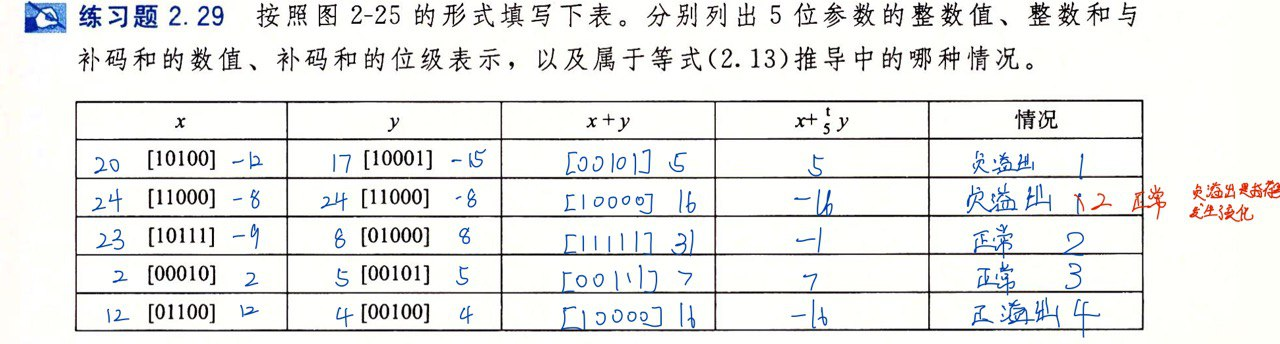 练习题 2.29 按照图 2-25 的形式填写下表。分别列出 5 位参数的整数值、整数和与
补码和的数值、补码和的位级表示，以及属于等式(2.13)推导中的哪种情况。
x y x+y x+ᵗ₅ y 情况
20 [10100] -12 17 [10001] -15 [00101] 5 5 负溢出 1
24 [11000] -8 24 [11000] -8 [10000] 16 -16 负溢出 1 × 2 正常 负溢出是指符
发生变化
23 [10111] -9 8 [01000] 8 [11111] 31 -1 正常 2
2 [00010] 2 5 [00101] 5 [00111] 7 7 正常 3
12 [01100] 12 4 [00100] 4 [10000] 16 -16 正溢出 4